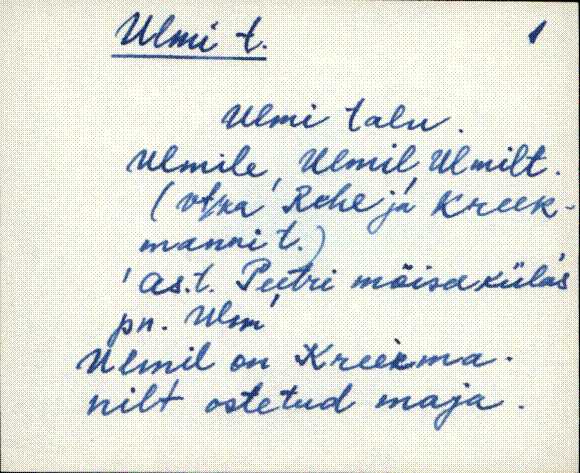 Ulmi t. 1
Ulmi talu.
Ulmile, Ulmil, Ulmilt.
(vt ka Rehe ja Kreek-
manni t.)
As.t. Peetri mõisakülas
pn. Ulm
Ulmil on Kreekma-
nilt ostetud maja.